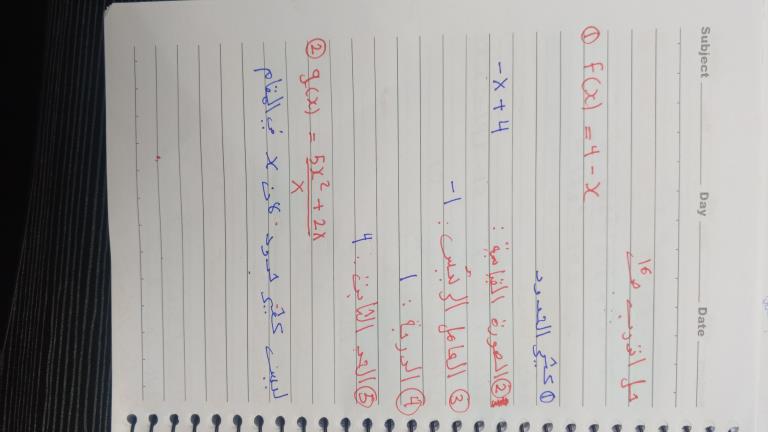 Subject Day Date
حل التدريب ص 16
① f(x) = 4 - x
① كثير الحدود
② الصورة القياسية : -x + 4
③ المعامل الرئيس : -1
④ الدرجة : 1
⑤ الحد الثابت : 4
② g(x) = 5x² + 2x / x
ليست كثير حدود لأن x في المقام